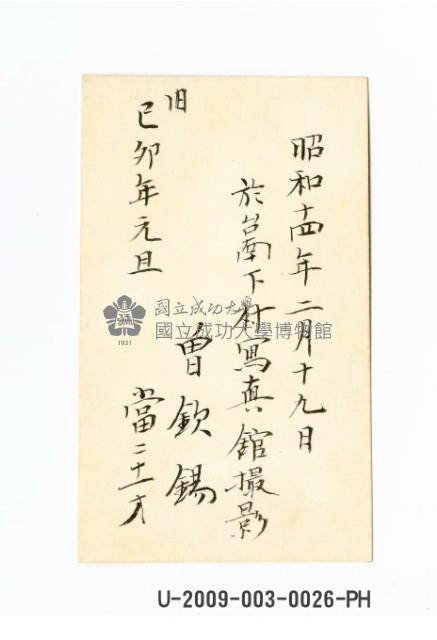 昭和十四年二月十九日
於台南下村寫真館撮影
曾欽錫
旧
己卯年元旦
當二十一才
國立成功大學
國立成功大學博物館
1931
U-2009-003-0026-PH